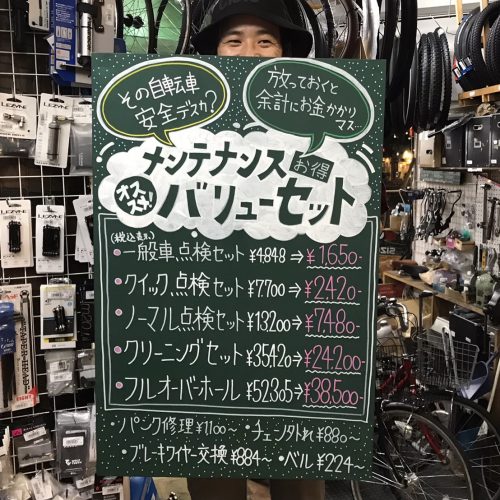 その自転車
安全デスカ?
放っておくと
余計にお金かかり
マス…
メンテナンス
お得
オススメ!
バリューセット
(税込表示)
・一般車点検セット ¥4.848⇒¥1.650-
・クイック点検セット ¥7.700⇒¥2.420-
・ノーマル点検セット ¥13.200⇒¥7.480-
・クリーニングセット ¥35.420⇒¥24.200-
・フルオーバーホール ¥52.305⇒¥38.500-
・パンク修理¥1100~ ・チェン外れ¥880~
・ブレーキワイヤー交換¥884~ ・ベル¥224~
LEZYNE
LEZYNE
LEZYNE
TAPER-HEAD